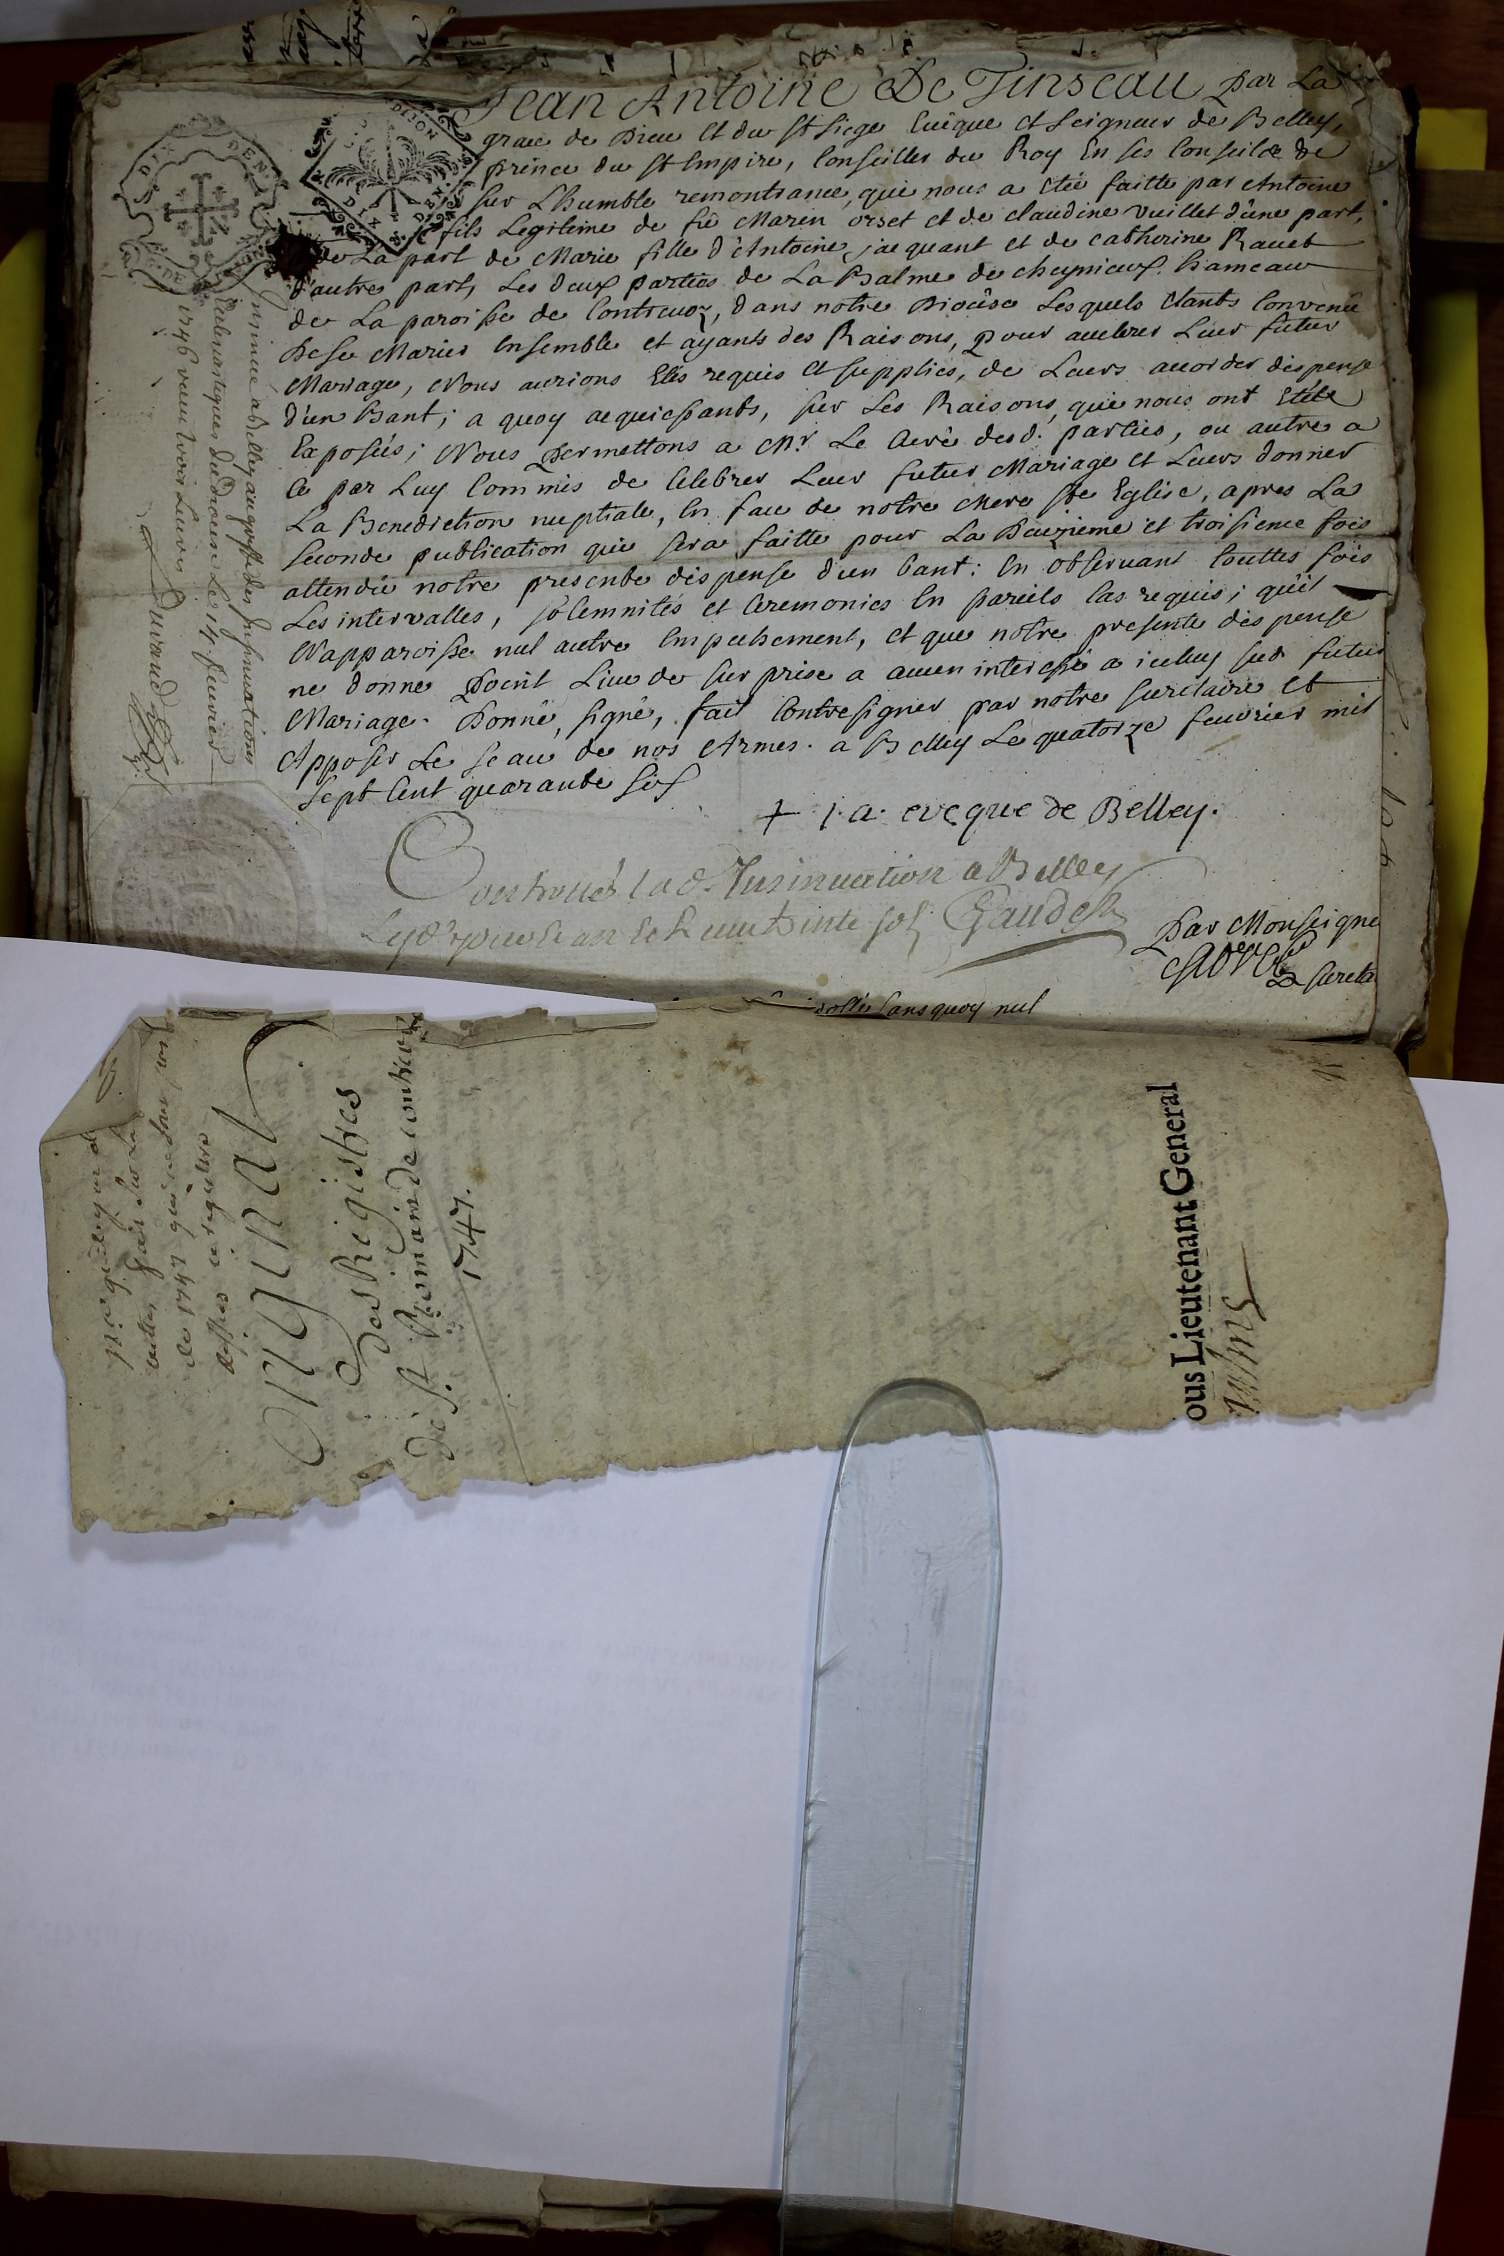 Jean Antoine De Tinseau par La
grace de Dieu et du St Siege Evêque et Seigneur de Belley,
prince du St Empire, Conseiller du Roy En ses Conseils &
sur L'humble remontrance, qui nous a etée faitte par Antoine
fils Legitime de fû Marin orset et de claudine vuillet d'une part,
de La part de Marie fille d'Antoine jacquant et de catherine Ravet
d'autre part, Les deux parties de La Balme de cheynieux hameau
de La paroisse de Contrevoz, dans notre Diocèse Lesquels Etants Convenû
De se Marier Ensemble et ayants des Raisons, pour acceleres Leur futur
Mariage, Nous aurions Etés requis et supplies, de Leurs accorder dispense
d'un Bant; a quoy acquiessants, sur Les Raisons, qui nous ont Etée
Exposées; Nous Permettons a Mr. Le Curé desd. parties, ou autre a
Ce par Luy Commis de Celebrer Leur futur Mariage et Leurs donner
La Benediction nuptiale, En face de notre Mere Ste Eglise, apres La
seconde publication qui sera faitte pour La Deuzieme et troisieme fois
attendû notre presente dispense d'un bant: En observant touttes fois
Les intervalles, sôlemnités et Ceremonies En pareils Cas requis; qu'il
N'apparoisse nul autre Empechement, et que notre presente dispense
ne donne Point Lieu de surprise a aucun interessé a iceluy sud. futur
Mariage. Donné, signé, fait Contresigner par notre secretaire et
Apposer Le sceau de nos Armes. a Belley Le quatorze fevvrier mil
sept Cent quarante six
+ j. a. eveque de Belley.
Controllé lad. Insinuation a Belley
Gaudet
Par Monseigne
secreta
sans quoy nul
DIX DEN.
DIJON
DIX DEN
Insinué a Belley au greffe des Insinuations
Ecclesiastiques dud. diocese Le 14 fevvrier
1746
Duvand
Original
Des Registres
de St Romain de Contrevoz
1747.
de 1747 qui
ous Lieutenant General